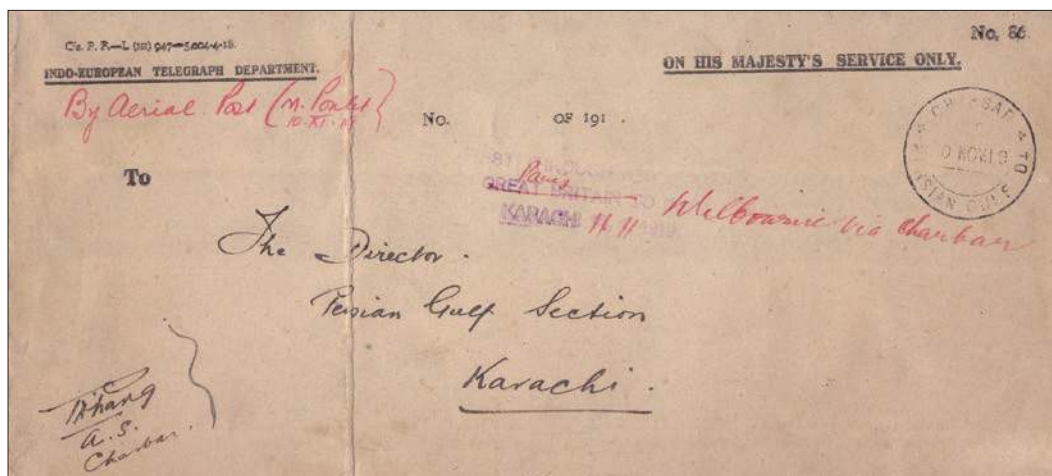 C's. P. P.—L (III) 947—5,004-4-18.
No. 86.
INDO-EUROPEAN TELEGRAPH DEPARTMENT.
ON HIS MAJESTY'S SERVICE ONLY.
By Aerial Post (M. Poulet
10.XI.19
No. OF 191 .
To
Paris
GREAT BRITAIN TO
KARACHI
Melbourne via Charbar
0 NOV 19
The Director.
Persian Gulf Section
Karachi.
A. S.
Charbar.